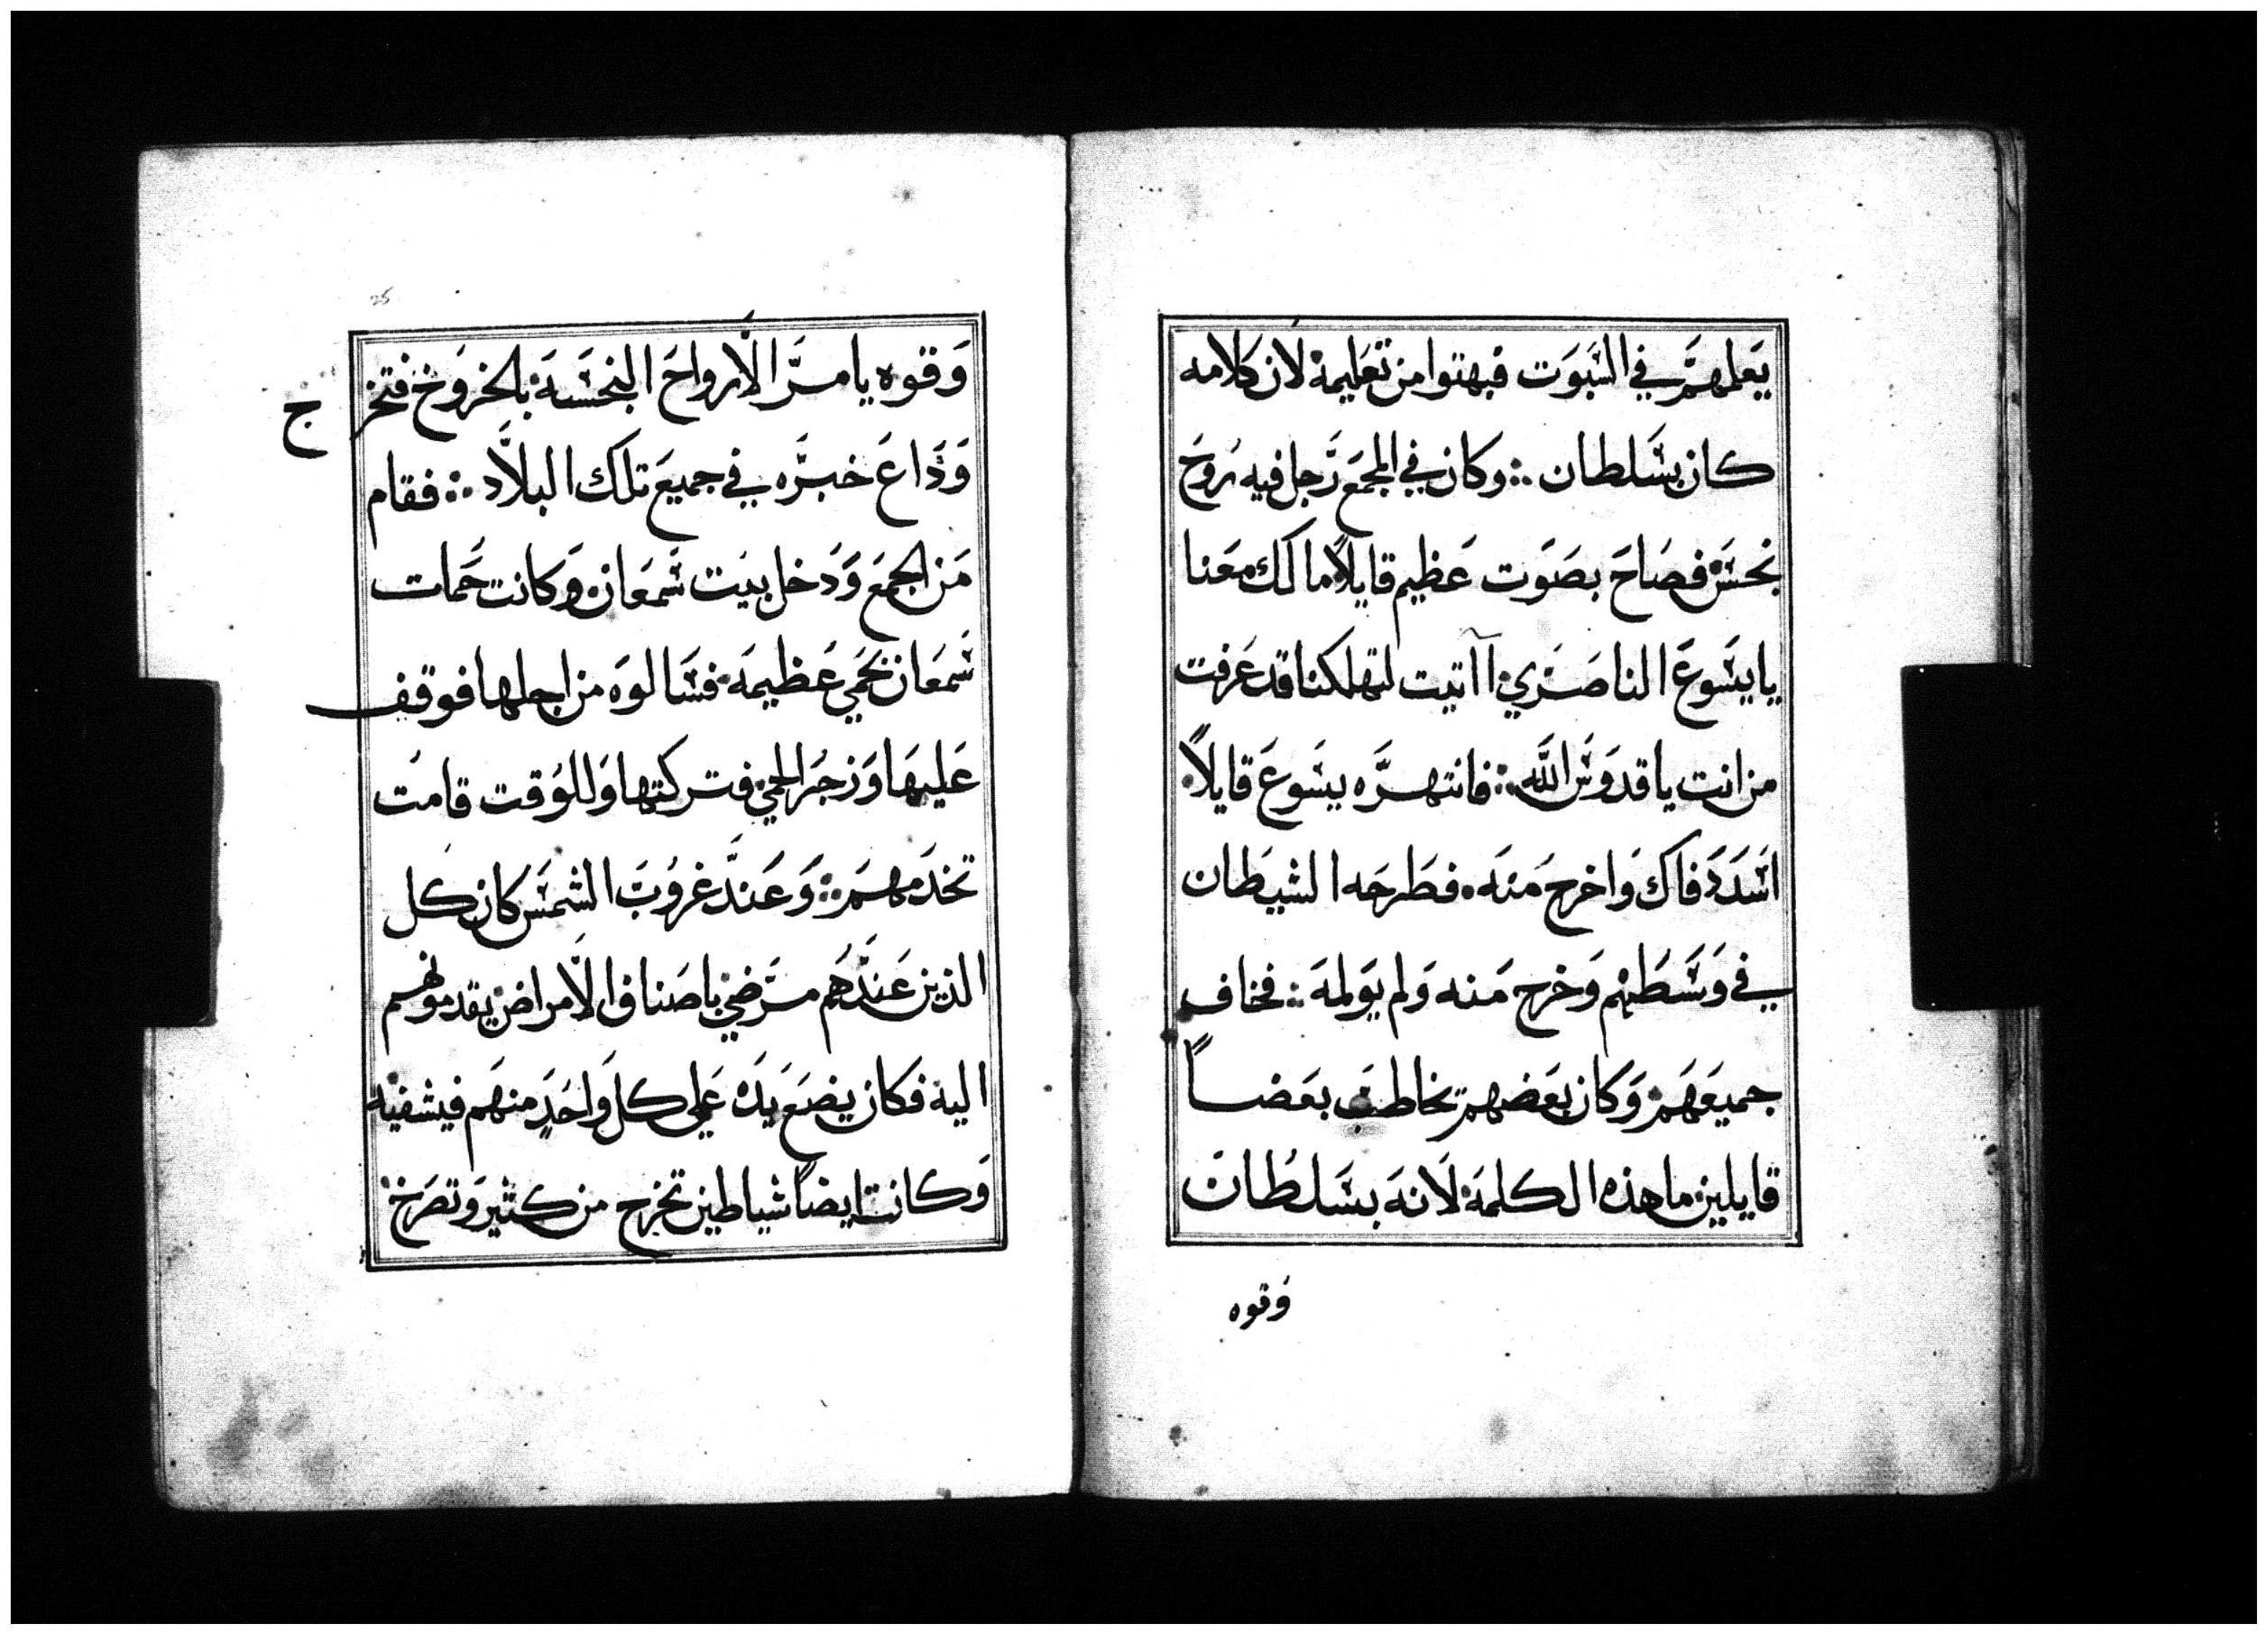 يعلمهم في السبوت فبهتوا من تعليمه لان كلامه
كان بسلطان ∴ وكان في المجمع رجل فيه روح
نجس فصاح بصوت عظيم قايلاً ما لك معنا
يا يسوع الناصري أاتيت لتهلكنا قد عرفت
من انت يا قدوس الله ∴ فانتهره يسوع قايلاً
اسدد فاك واخرج منه فطرحه الشيطان
في وسطهم وخرج منه ولم يولمه ∴ فخاف
جميعهم وكان بعضهم يخاطب بعضاً
قايلين ما هذه الكلمة لانه بسلطان
وقوه
وقوه يامر الارواح النجسة بالخروج فتخرج
وذاع خبره في جميع تلك البلاد ∴ فقام
من المجمع ودخل بيت سمعان وكانت حمات
سمعان بحمي عظيمة فسالوه من اجلها فوقف
عليها وزجر الحمي فتركتها وللوقت قامت
تخدمهم ∴ وعند غروب الشمس كان كل
الذين عندهم مرضي باصناف الامراض يقدمونهم
اليه فكان يضع يده علي كل واحد منهم فيشفيه
وكانت ايضاً شياطين تخرج من كثير وتصرخ
25